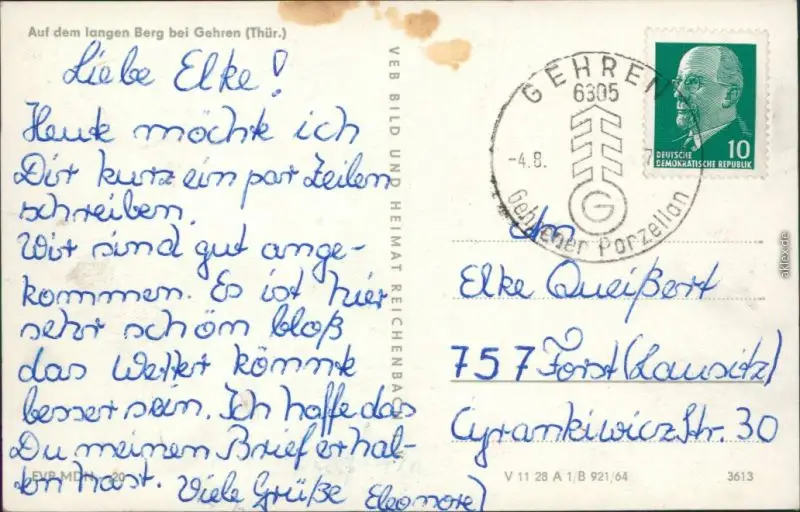 Auf dem langen Berg bei Gehren (Thür.)
Liebe Elke!
Heute möchte ich
Dir kurz ein par Zeilen
schreiben.
Wir sind gut ange-
kommen. Es ist hier
sehr schön bloß
das Wetter könnte
besser sein. Ich hoffe das
Du meinen Brief erhal-
ten hast. Viele Grüße Eleonore)
EVP MDN -,20
VEB BILD UND HEIMAT REICHENBACH
GEHREN
6305
-4.8.
G
Gehrener Porzellan
DEUTSCHE
DEMOKRATISCHE REPUBLIK
10
An
Elke Queißert
757 Forst (Lausitz)
Cyrankiwicz Str. 30
V 11 28 A 1/B 921/64
3613
aklex.de